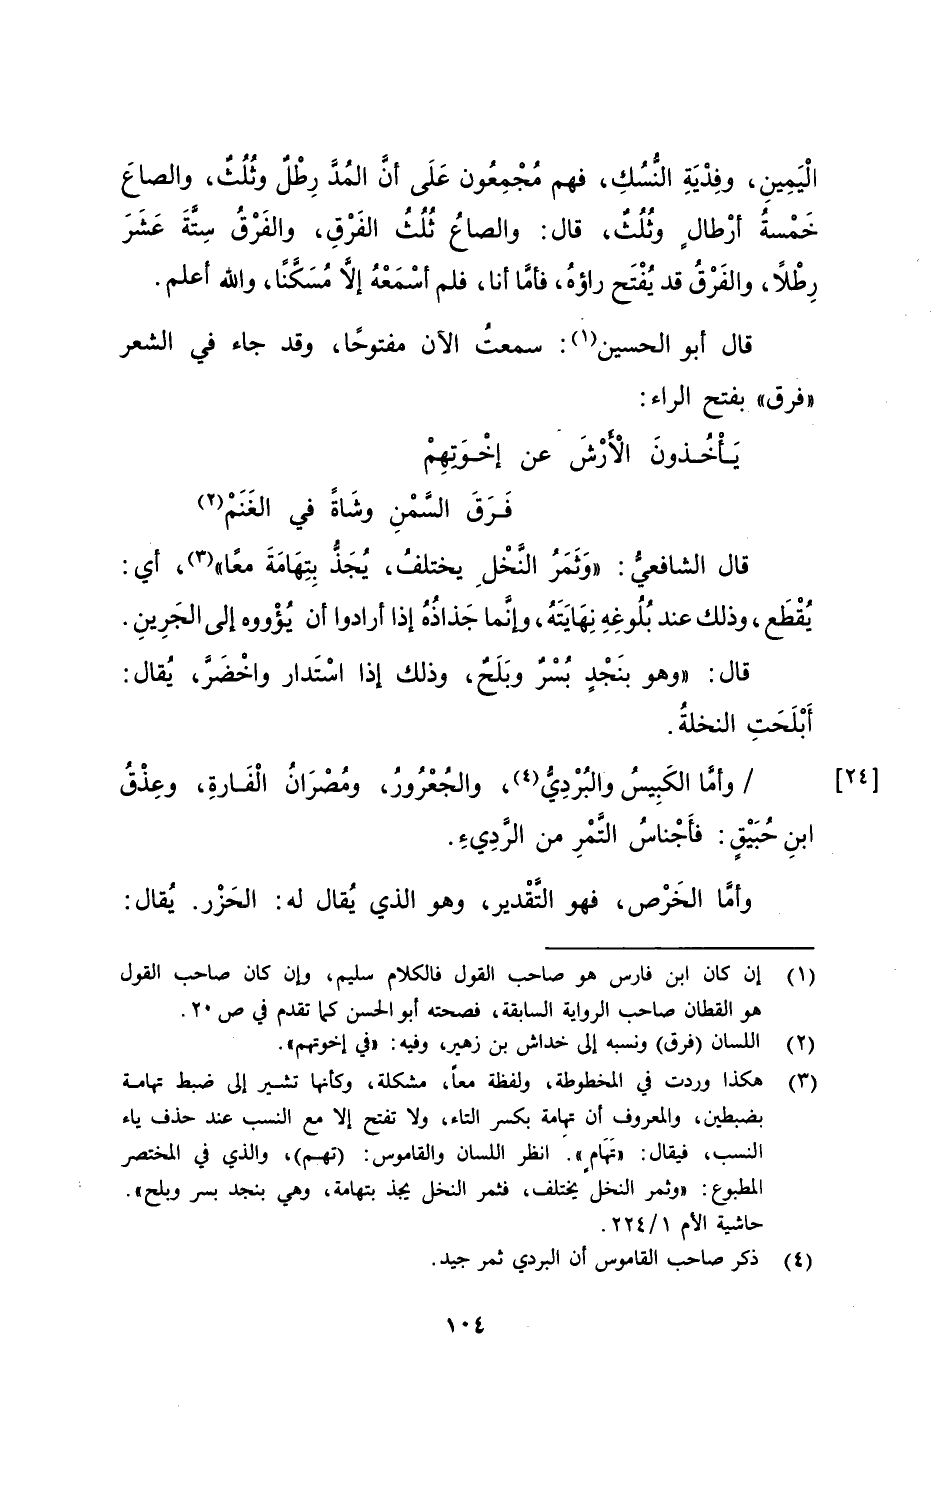 الْيَمِينِ، وفِدْيَةِ النُّسُكِ، فهم مُجْمِعُون عَلَى أنَّ المُدَّ رِطْلٌ وثُلُثٌ، والصاعَ
خَمْسةُ أرْطالٍ وثُلُثٌ، قال: والصاعُ ثُلُثُ الفَرْقِ، والفَرْقُ سِتَّةَ عَشَرَ
رِطْلاً، والفَرْقُ قد يُفْتَح راؤهُ، فأمَّا أنا، فلم أسْمَعْهُ إلَّا مُسَكَّنًا، والله أعلم.
قال أبو الحسين(١): سمعتُ الآن مفتوحًا، وقد جاء في الشعر
«فرق» بفتح الراء:
يَأْخُذونَ الْأَرْشَ عن إخْوَتِهِمْ
فَرَقَ السَّمْنِ وشَاةً في الغَنَمْ(٢)
قال الشافعيُّ: «وَثَمَرُ النَّخْلِ يختلفُ، يُجَذُّ بِتِهَامَةَ معًا»(٣)، أي:
يُقْطَع، وذلك عند بُلُوغِهِ نِهَايَتَهُ، وإنَّما جَذاذُهُ إذا أرادوا أن يُؤْووه إلى الجَرِينِ.
قال: «وهو بنَجْدٍ بُسْرٌ وبَلَحٌ، وذلك إذا اسْتَدار واخْضَرَّ، يُقال:
أَبْلَحَتِ النخلةُ.
[٢٤] / وأمَّا الكَبِيسُ والبُرْدِيُّ(٤)، والجُعْرُورُ، ومُصْرَانُ الْفَارةِ، وعِذْقُ
ابنِ حُبَيْقٍ: فأَجْناسُ التَّمْرِ من الرَّدِيءِ.
وأمَّا الخَرْص، فهو التَّقْدير، وهو الذي يُقال له: الحَزْر. يُقال:
(١) إن كان ابن فارس هو صاحب القول فالكلام سليم، وإن كان صاحب القول
هو القطان صاحب الرواية السابقة، فصحته أبو الحسن كما تقدم في ص ٢٠.
(٢) اللسان (فرق) ونسبه إلى خداش بن زهير، وفيه: «في إخوتهم».
(٣) هكذا وردت في المخطوطة، ولفظة معاً، مشكلة، وكأنها تشير إلى ضبط تهامة
بضبطين، والمعروف أن تهامة بكسر التاء، ولا تفتح إلا مع النسب عند حذف ياء
النسب، فيقال: «تَهَامٍ». انظر اللسان والقاموس: (تهم)، والذي في المختصر
المطبوع: «وثمر النخل يختلف، فثمر النخل يجذ بتهامة، وهي بنجد بسر وبلح».
حاشية الأم ٢٢٤/١.
(٤) ذكر صاحب القاموس أن البردي ثمر جيد.
١٠٤